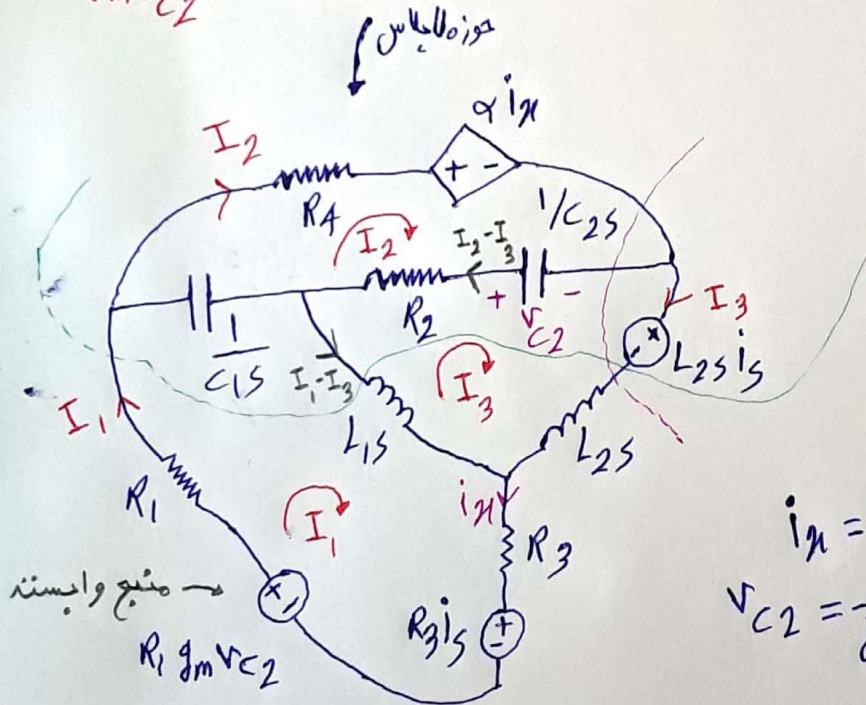 C2
حوزه لاپلاس
αix
I2
+ -
R4
1/C2S
I2
I2-I3
R2
+ VC2 -
I3
1/C1S
I1-I3
I3
+ -
L2S is
I1
L1S
L2S
R1
I1
ix
R3
ix =
منبع وابسته →
+ -
R3is
+ -
VC2 =
R1 gm VC2